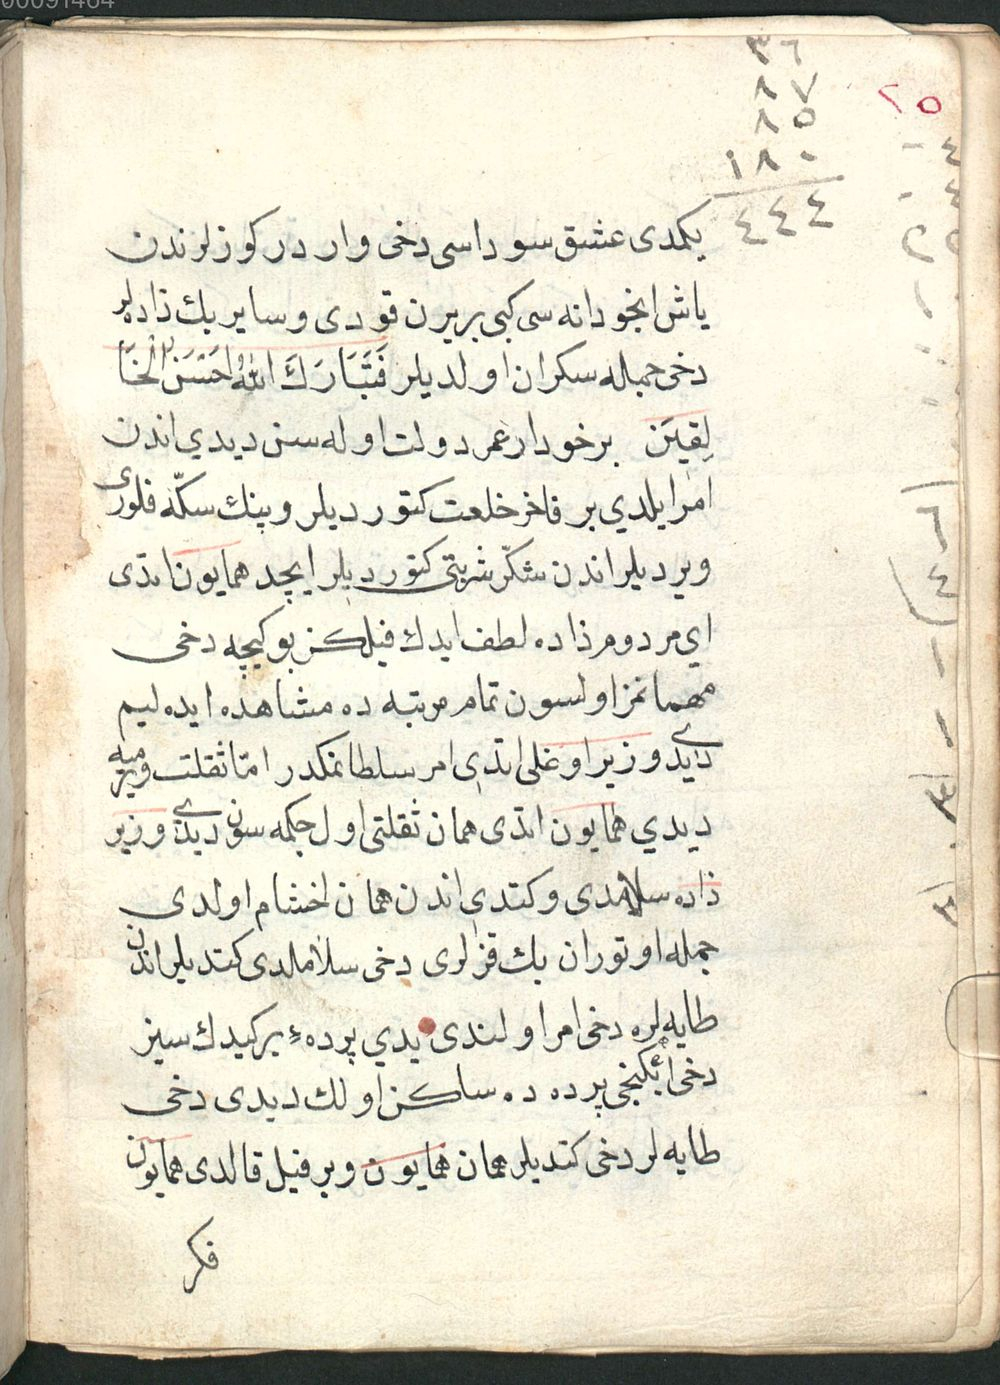 00091464
٣٦
٨٧
٨٥
١٨٠
٤٤٤
٢٥
يكمدى عشق سوداسى دخى واردر كوزلرندن
ياش انجو دانه سى كبى بريرن قودى وساير بك زاده لر
دخى جمله سكران اولديلر فَتَبَارَكَ اللهُ اَحْسَنُ الْخَا
لِقِينَ برخودار عمر دولت اوله سن ديدي اندن
امر ايلدي بر فاخر خلعت كتورديلر وبيك سكّه فلورى
ويرديلر اندن شكّر شربتى كتورديلر ايچد همايون اتدى
اي مردومرزاده لطف ايدك فيلكز بو كيچه دخى
مهمانمز اولسون تمام مرتبه ده مشاهده ايده ليم
ديدى وزير اوغلى اتدي امر سلطانمكدر امّا ثقلت ويرميه
ديدي همايون اتدى همان ثقلتى اول چكمه سون ديدى وزير
زاده سلاملدى وكتدي اندن همان اختتام اولدي
جمله اوتوران بك قزلرى دخى سلاملدى كتديلر اندن
طايه لره دخى امر اولندى يدي پرده ء يركيدك سيز
دخى ايكنجى پرده ده ساكن اولك ديدى دخى
طايه لر دخى كتديلر همان همايون وبر فيل قالدى همايون
فكر